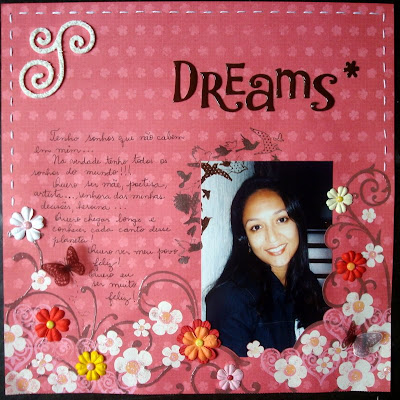 DREAMS*
Tenho sonhos que não cabem
em mim...
Na verdade tenho todos os
sonhos do mundo!!!
Quero ser mãe, poetisa,
artista... senhora das minhas
Quero chegar longe e
conhecer cada canto desse
planeta.
Quero ver meu povo
feliz!
Quero eu
ser muito
feliz!